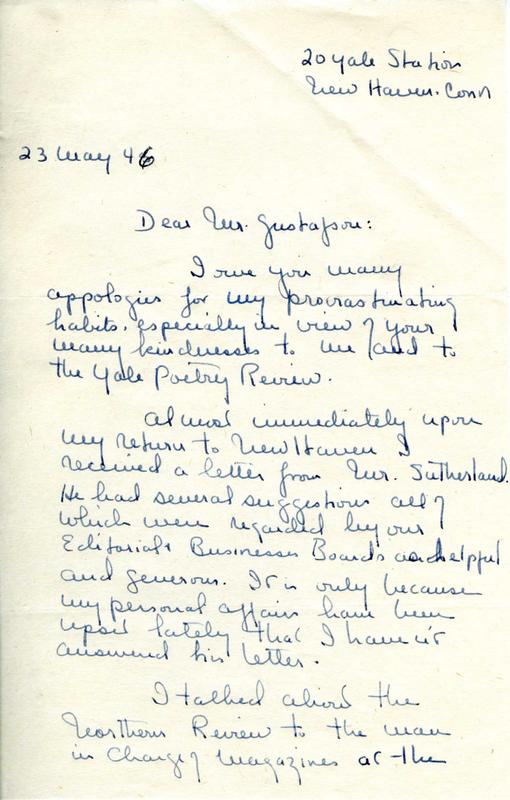 20 Yale Station
New Haven. Conn
23 May 46
Dear Mr. Gustafson:
I owe you many
appologies for my procrastinating
habits, especially in view of your
many kindnesses to me and to
the Yale Poetry Review.
Almost immediately upon
my return to New Haven I
received a letter from Mr. Sutherland.
He had several suggestions all of
which were regarded by our
Editorial & Business Boards as helpful
and generous. It is only because
my personal affairs have been
upset lately that I haven't
answered his letter.
I talked about the
Northern Review to the man
in charge of magazines at the